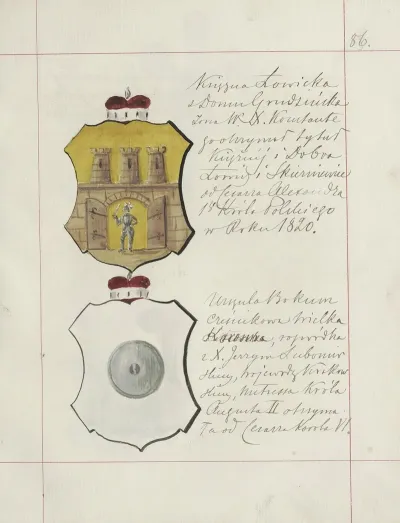 86.
Księżna Łowicka
z Domu Grudzińska
żona W. X. Konstante
go otrzymał tytuł
Księżnej i Dobra
Łowicz i Skierniewice
od Cesarza Alexandra
1º Króla Polskiego
w Roku 1820.
Urszula Bokum
cześnikowa Wielka
rozwódka
z X. Jerzym Lubomir
skim, Wojewodą Krakow
skim, metressa Króla
Augusta II otrzyma
ła od Cesarza Karola VI.